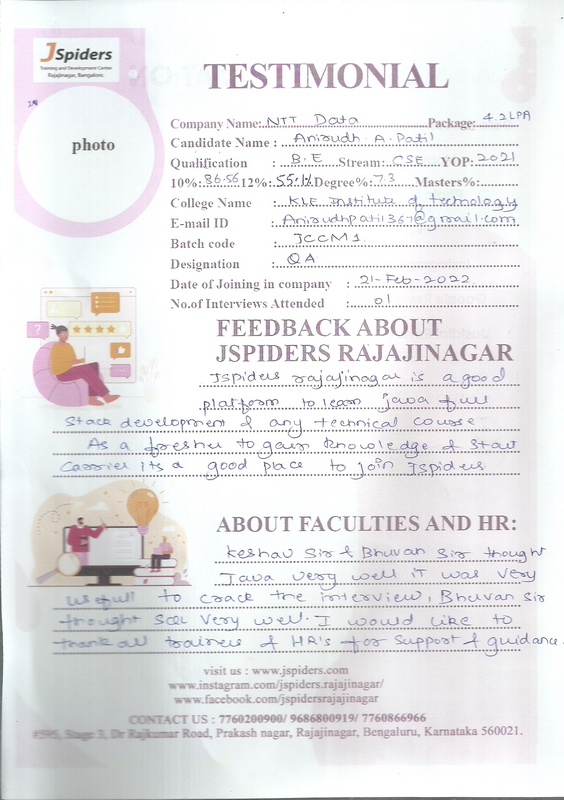 JSpiders
Training and Development Center
Rajajinagar, Bangalore.
TESTIMONIAL
photo
Company Name: NTT Data Package: 4.2LPA
Candidate Name : Anirudh A. Patil
Qualification : B.E Stream: CSE YOP: 2021
10%: 86.56 12%: 55.14 Degree%: 7.3 Masters%:
College Name : KLE Institute of technology
E-mail ID : Anirudhpatil367@gmail.com
Batch code JCCM1
Designation : QA
Date of Joining in company : 21-Feb-2022
No.of Interviews Attended : 01
FEEDBACK ABOUT
JSPIDERS RAJAJINAGAR
Jspiders rajajinagar is a good
platform to learn java full
stack development & any technical course
As a fresher to gain knowledge & start
carrier its a good place to join Jspiders
ABOUT FACULTIES AND HR:
Keshav Sir & Bhuvan Sir thought
Java very well it was very
usefull to crack the interview, Bhuvan Sir
thought SQL very well. I would like to
thank all trainers & HR's for support & guidance.
visit us : www.jspiders.com
www.instagram.com/jspiders.rajajinagar/
www.facebook.com/jspidersrajajinagar
CONTACT US : 7760200900/ 9686800919/ 7760866966
#595, Stage 3, Dr Rajkumar Road, Prakash nagar, Rajajinagar, Bengaluru, Karnataka 560021.